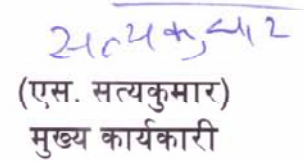 सत्यकुमार
(एस. सत्यकुमार)
मुख्य कार्यकारी